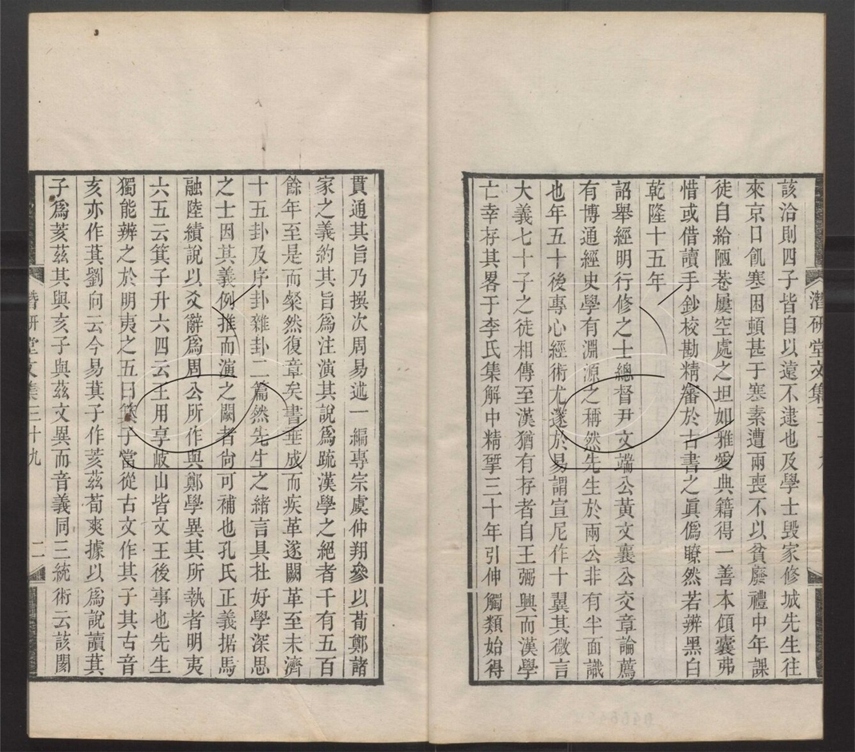 該洽則四子皆自以遠不逮也及學士毀家修城先生往
來京口飢寒困頓甚于寒素遭兩喪不以貧廢禮中年課
徒自給陋巷屢空處之坦如雅愛典籍得一善本傾囊弗
惜或借讀手鈔校勘精審於古書之真僞瞭然若辨黑白
乾隆十五年
詔舉經明行修之士總督尹文端公黃文襄公交章論薦
有博通經史學有淵源之稱然先生於兩公非有半面識
也年五十後專心經術尤邃於易謂宣尼作十翼其微言
大義七十子之徒相傳至漢猶有存者自王弼興而漢學
亡幸存其畧于李氏集解中精揅三十年引伸觸類始得
貫通其旨乃撰次周易述一編專宗虞仲翔參以荀鄭諸
家之義約其旨爲注演其說爲疏漢學之絕者千有五百
餘年至是而粲然復章矣書垂成而疾革遂闕革至未濟
十五卦及序卦雜卦二篇然先生之緒言具杜好學深思
之士因其義例推而演之闕者尙可補也孔氏正義据馬
融陸績說以爻辭爲周公所作與鄭學異其所執者明夷
六五云箕子升六四云王用享岐山皆文王後事也先生
獨能辨之於明夷之五曰箕子當從古文作其子其古音
亥亦作萁劉向云今易萁子作荄茲荀爽據以爲說讀萁
子爲荄茲其與亥子與茲文異而音義同三統術云該閡
潛研堂文集三十九
二
潛研堂文集三十九